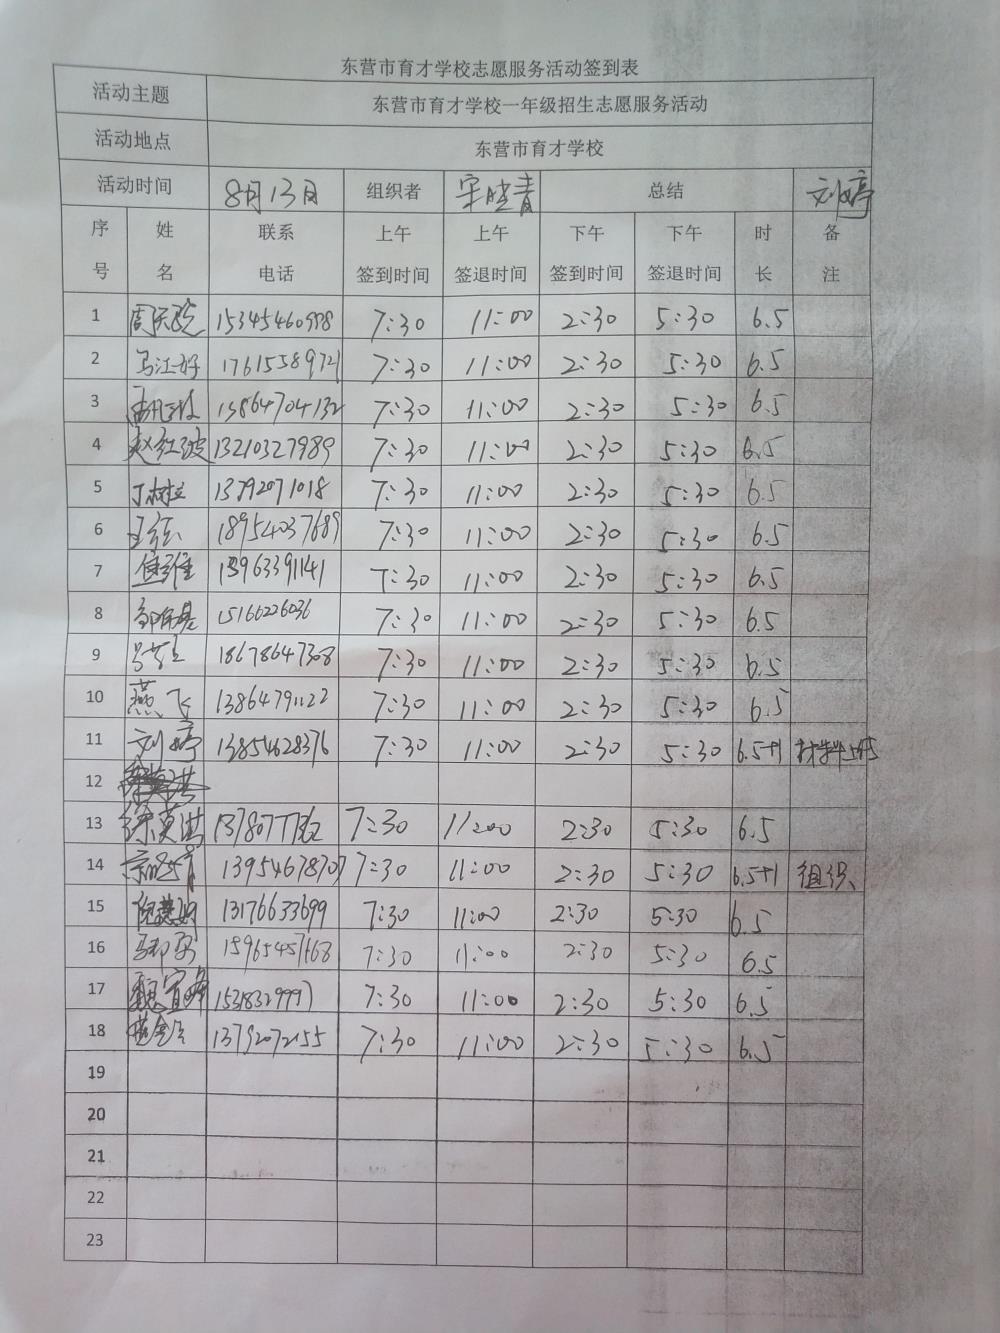 东营市育才学校志愿服务活动签到表
活动主题 东营市育才学校一年级招生志愿服务活动
活动地点 东营市育才学校
活动时间 8月13日 组织者 宋晓青 总结 刘婷
序号 姓名 联系电话 上午签到时间 上午签退时间 下午签到时间 下午签退时间 时长 备注
1 7:30 11:00 2:30 5:30 6.5
2 马江好 7:30 11:00 2:30 5:30 6.5
3 13864704132 7:30 11:00 2:30 5:30 6.5
4 赵红波 13210327989 7:30 11:00 2:30 5:30 6.5
5 13792071018 7:30 11:00 2:30 5:30 6.5
6 18954037689 7:30 11:00 2:30 5:30 6.5
7 15963391141 7:30 11:00 2:30 5:30 6.5
8 15166226036 7:30 11:00 2:30 5:30 6.5
9 18678647308 7:30 11:00 2:30 5:30 6.5
10 燕飞 13864791122 7:30 11:00 2:30 5:30 6.5
11 刘婷 13854628376 7:30 11:00 2:30 5:30 6.5+1
12
13 徐英洪 7:30 11:00 2:30 5:30 6.5
14 13954678707 7:30 11:00 2:30 5:30 6.5+1 组织
15 13176633699 7:30 11:00 2:30 5:30 6.5
16 15965457668 7:30 11:00 2:30 5:30 6.5
17 魏宜峰 15318329997 7:30 11:00 2:30 5:30 6.5
18 13792072155 7:30 11:00 2:30 5:30 6.5
19
20
21
22
23